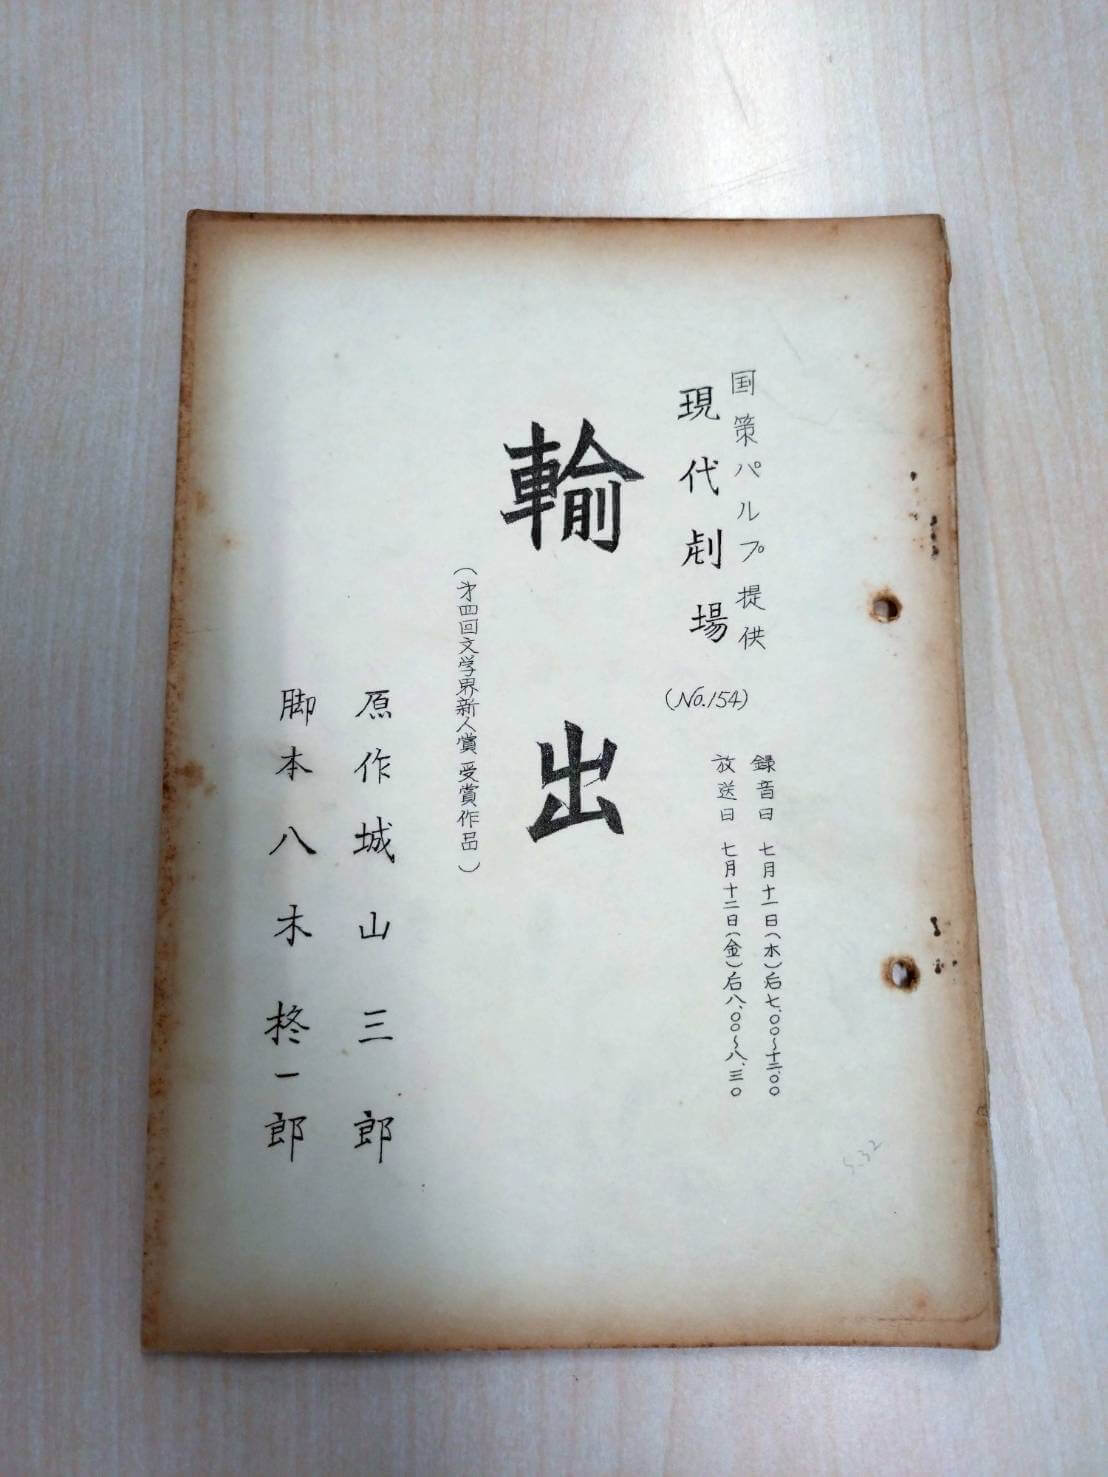 国策パルプ提供
現代劇場
(No.154)
録音日 七月十一日(木)后七.〇〇〜十二.〇〇
放送日 七月十二日(金)后八.〇〇〜八.三〇
輸出
(才四回文学界新人賞受賞作品)
原作 城山三郎
脚本 八木柊一郎
S.32